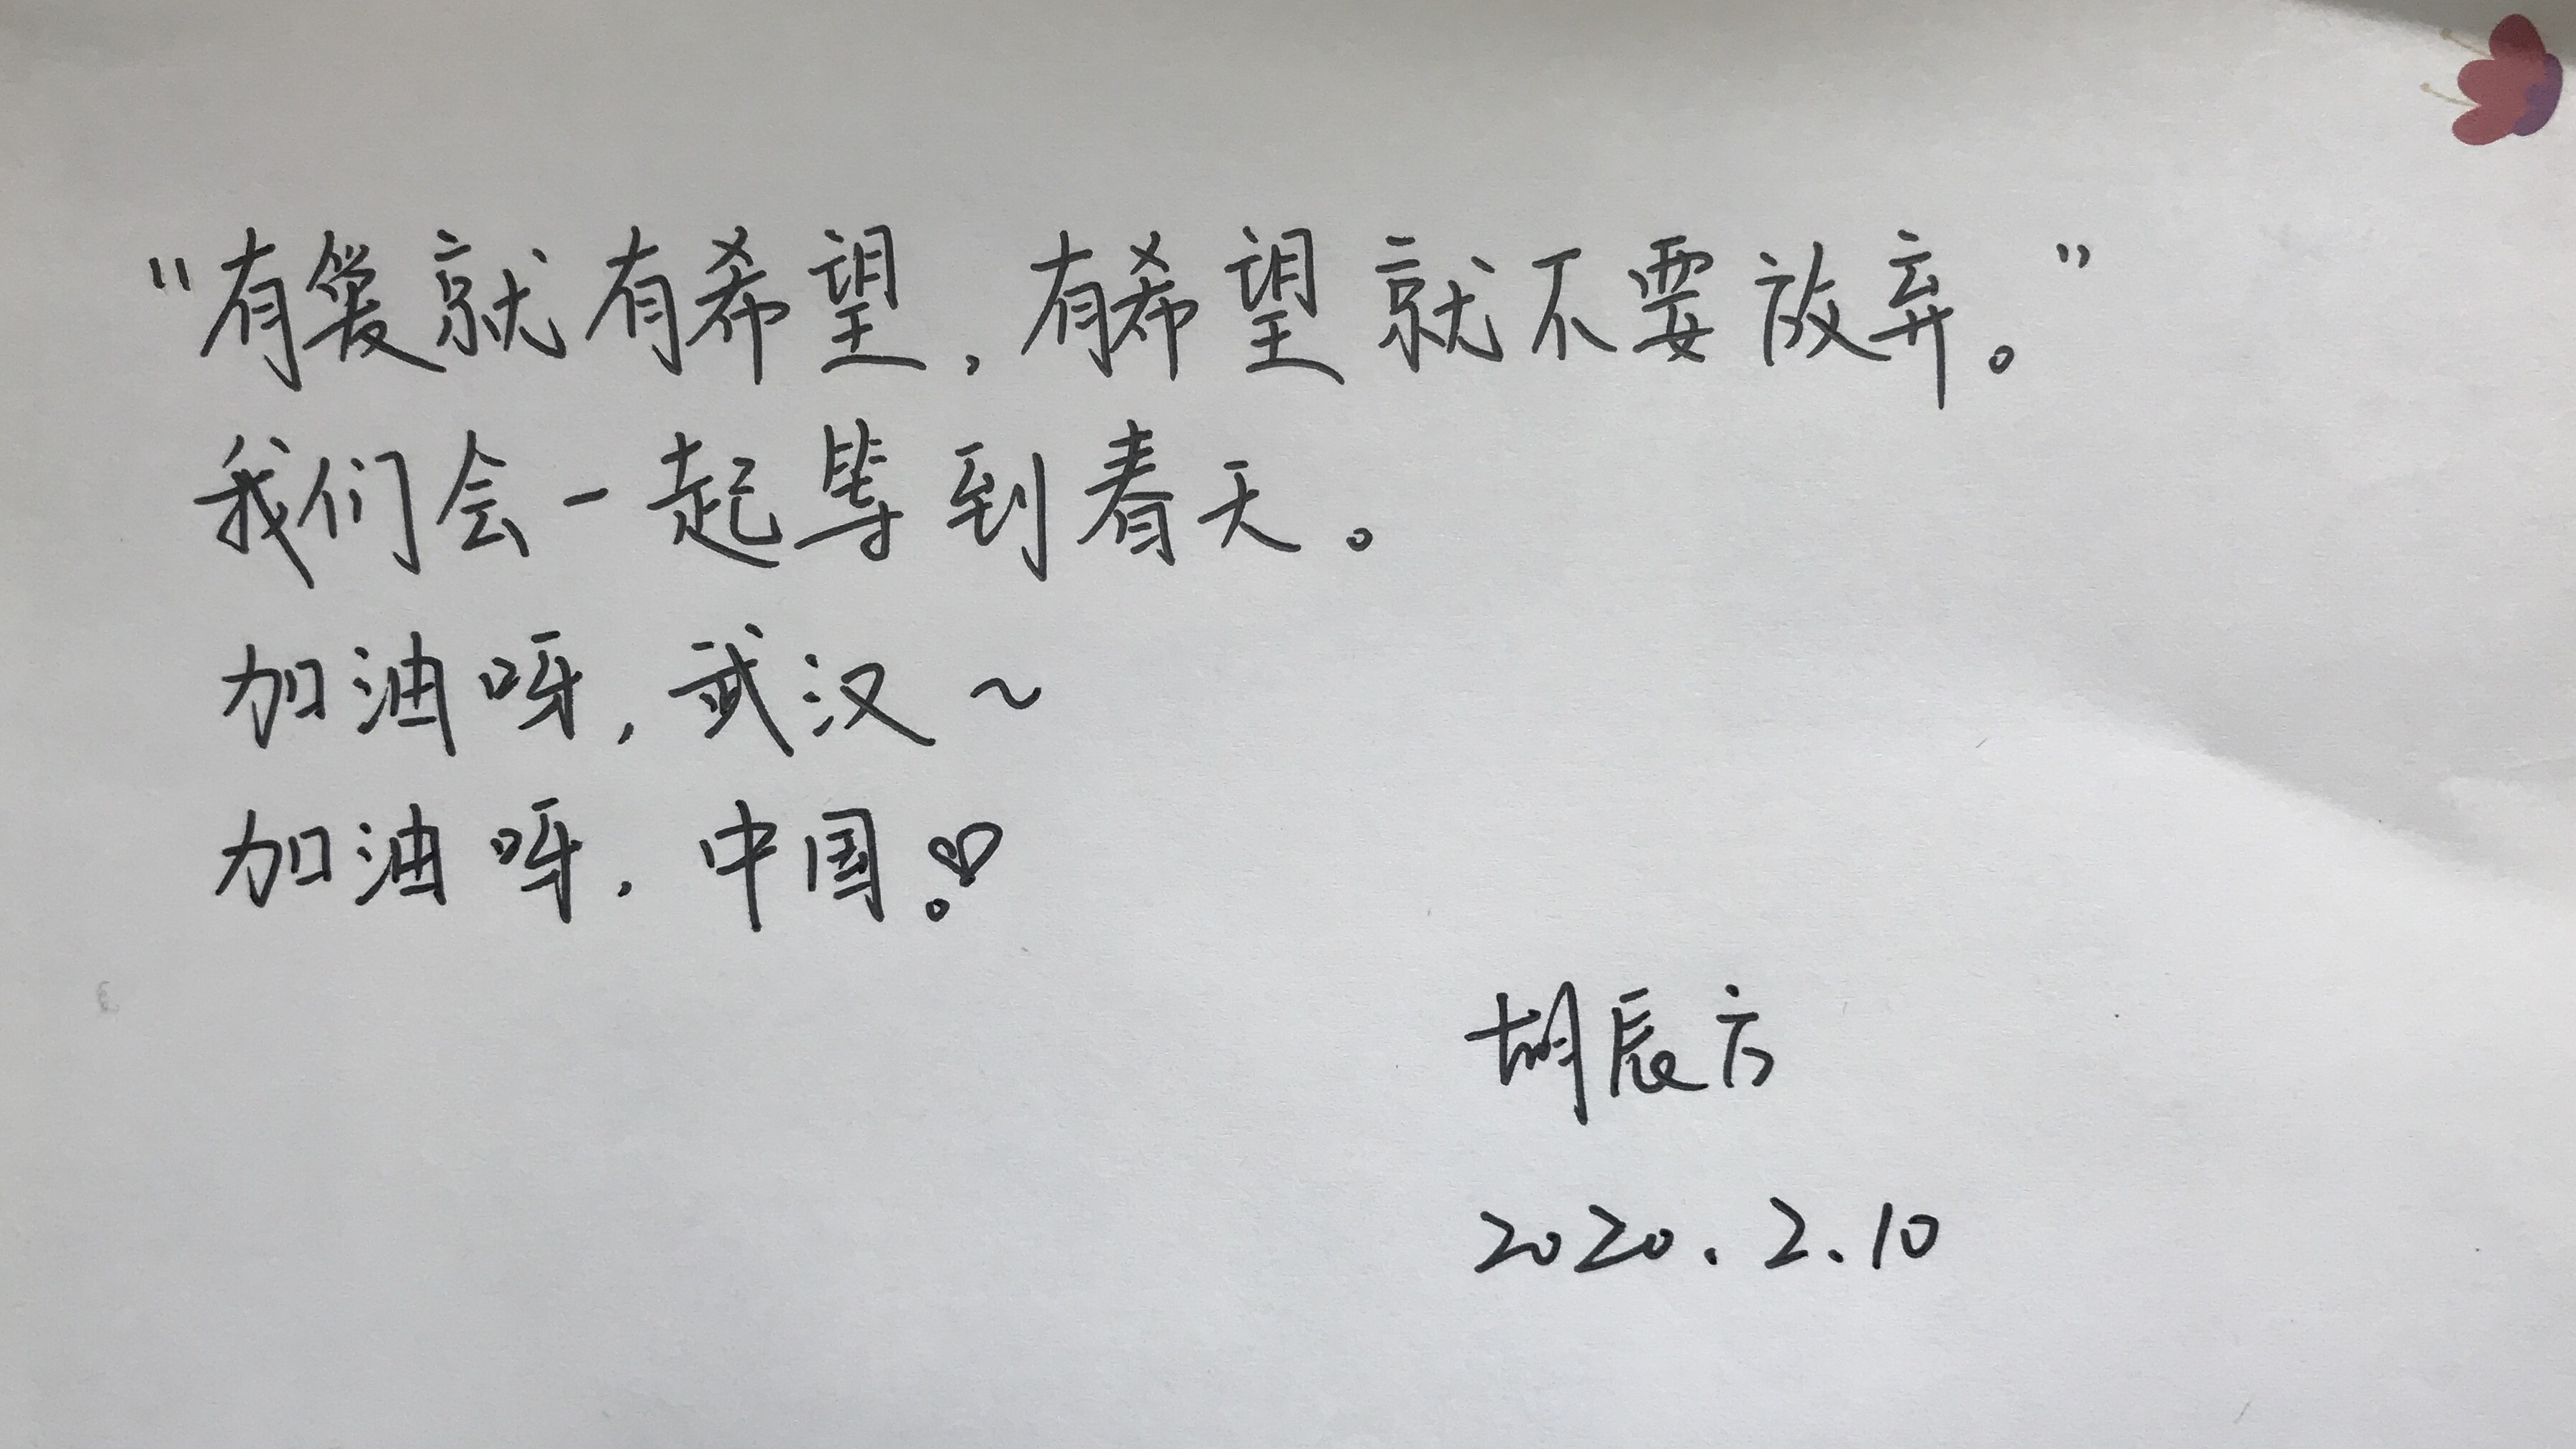 “有爱就有希望，有希望就不要放弃。”
我们会一起等到春天。
加油呀，武汉～
加油呀，中国。♡
胡辰方
2020.2.10